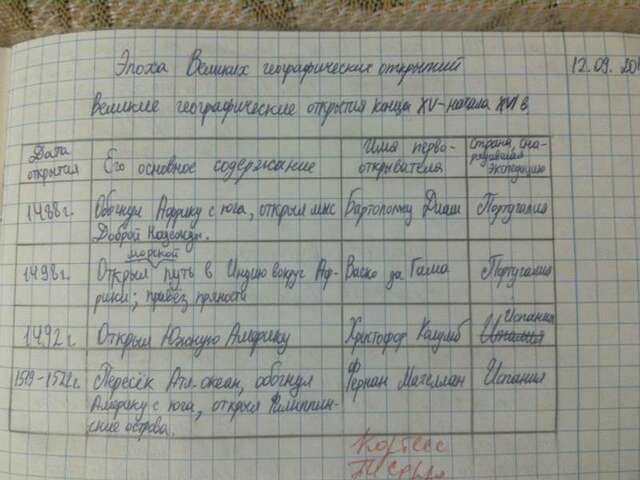 Эпоха Великих географических открытий
12.09.20
Великие географические открытия конца XV-начала XVI в.
Дата открытия
Его основное содержание
Имя перво-
открывателя
Страна, сна-
рядившая
экспедицию
1488г.
Обогнул Африку с юга, открыл мыс
Доброй Надежды.
Бартоломеу Диаш
Португалия
1498г.
морской
Открыл путь в Индию вокруг Аф-
рики; привёз пряности
Васко да Гама
Португалия
1492г.
Открыл Южную Америку
Христофор Колумб
Испания
1519-1522г.
Пересёк Атл. океан, обогнул
Америку с юга, открыл Филиппин-
ские острова.
Фернан Магеллан
Испания
Кортес